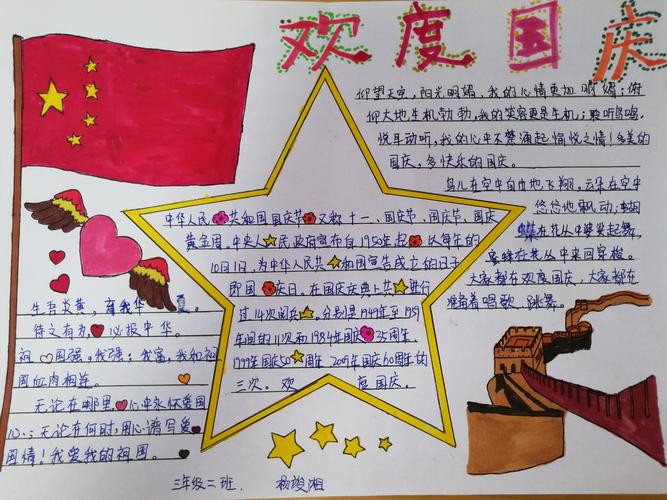 欢度国庆
仰望天空，阳光明媚，我的心情更加明媚；俯
仰大地生机勃勃，我的笑容更是生机；聆听鸟鸣，
悦耳动听，我的心中不禁涌起愉悦之情！多美的
国庆，多快乐的国庆。
鸟儿在空中自由地飞翔，云朵在空中
悠悠地飘动，蝴
蝶在花丛中翩翩起舞，
蜜蜂在花丛中来回穿梭。
大家都在欢度国庆，大家都在
准备着唱歌、跳舞。
中华人民共和国国庆节又称十一、国庆节、国庆
黄金周，中央人民政府宣布自1950年起以每年的
10月1日，为中华人民共和国宣告成立的日子
即国庆日，在国庆庆典上共进行
过14次阅兵，分别是1949年至1959
年间的11次和1984年国庆35周年，
1999年国庆50周年 2009年国庆60周年的
三次。欢 度国庆。
生吾炎黄，育我华夏。
待之有为，必报中华。
祖国强，我强；我富，我和祖
国血肉相连。
无论在哪里，心中永怀爱国
心；无论在何时，用心谱写爱
国情！我爱我的祖国。
三年级二班. 杨浚湘